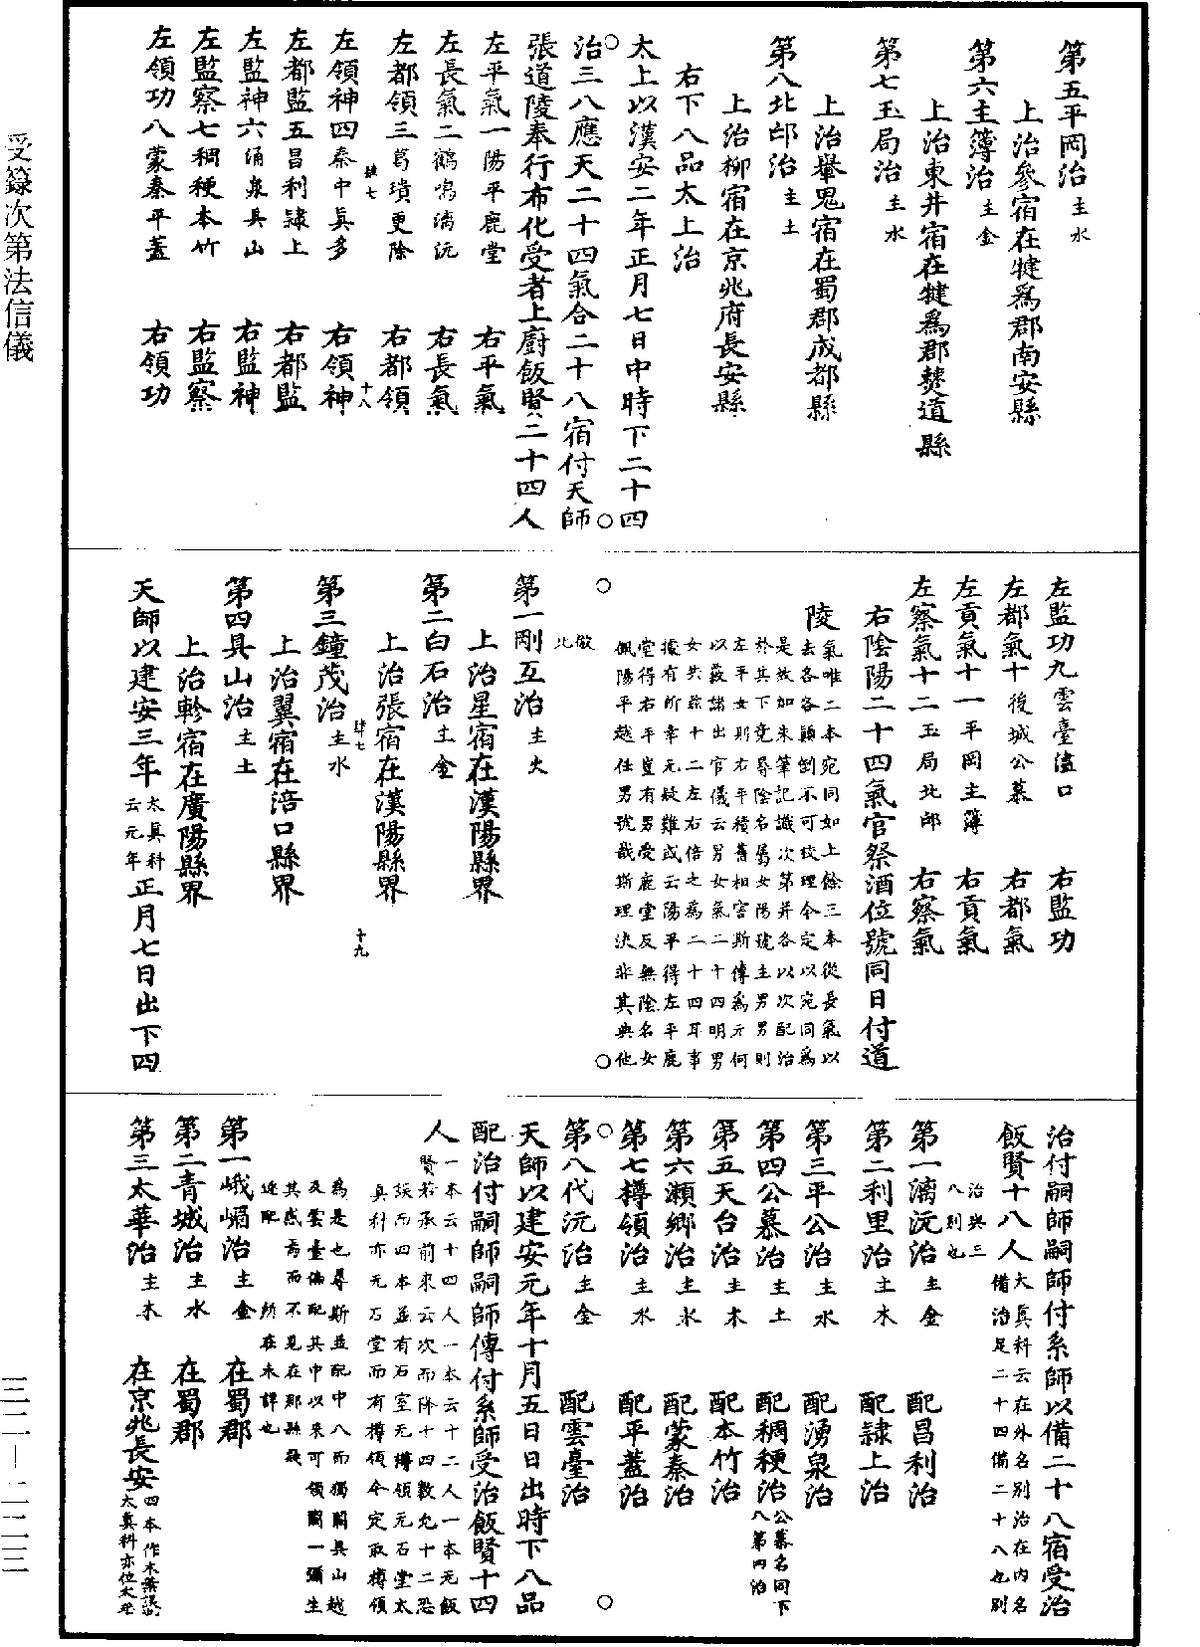 第五平岡治主水
上治參宿在犍爲郡南安縣
第六主簿治主金
上治東井宿在犍爲郡僰道縣
第七玉局治主水
上治舉鬼宿在蜀郡成都縣
第八北邙治主土
上治柳宿在京兆府長安縣
右下八品太上治
太上以漢安二年正月七日中時下二十四
治三八應天二十四氣合二十八宿付天師
張道陵奉行布化受者上廚飯賢二十四人
左平氣一陽平鹿堂 右平氣
左長氣二鶴鳴漓沅 右長氣
左都領三葛璝更除 右都領
肆七 十八
左領神四秦中眞多 右領神
左都監五昌利隸上 右都監
左監神六涌泉具山 右監神
左監察七稠稉本竹 右監察
左領功八蒙秦平蓋 右領功
左監功九雲臺濜口 右監功
左都氣十後城公慕 右都氣
左貢氣十一平岡主簿 右貢氣
左察氣十二玉局北邙 右察氣
右陰陽二十四氣官祭酒位號同日付道
陵
氣唯二本宛同如上餘三本從長氣以
去各各顛倒不可校理今定以宛同爲
是故加朱筆記識次第并各以次配治
於其下竟尋陰名屬女陽號主男男則
左平女則右平積舊相害斯傳爲元何
以覈諸出官儀云男女氣二十四明男
女共茲十二左右倍之爲二十四耳事
據有所幸无疑雖或云陽平得左平鹿
堂得右平豈有男受鹿堂反無陰名女
佩陽平越任男號哉斯理決非其典他
倣
北
第一剛互治主火
上治星宿在漢陽縣界
第二白石治主金
上治張宿在漢陽縣界
肆七 十九
第三鐘茂治主水
上治翼宿在涪口縣界
第四具山治主土
上治軫宿在廣陽縣界
天師以建安三年太眞科云元年正月七日出下四
治付嗣師嗣師付系師以備二十八宿受治
飯賢十八人大眞科云在外名別治在内名備治足二十四備二十八也別
治與三
八別也
第一漓沅治主金 配昌利治
第二利里治主木 配隸上治
第三平公治主水 配湧泉治
第四公慕治主土 配稠稉治公慕名同下八第四治
第五天台治主木 配本竹治
第六瀨鄉治主水 配蒙秦治
第七樽領治主水 配平蓋治
第八代沅治主金 配雲臺治
天師以建安元年十月五日日出時下八品
配治付嗣師嗣師傳付系師受治飯賢十四
人
一本云十四人一本云十二人一本无飯
賢若承前來云次而降十四數允十二恐
誤而四本並有石室元樽領元石堂太
眞科亦元石堂而有樽領今定取樽領
爲是也尋斯並配中八而獨闕具山越
及雲臺偏配其中以來可領闕一彌生
其惑焉而不見在那縣疑
逆配 所在未詳也
第一峨嵋治主金 在蜀郡
第二青城治主水 在蜀郡
第三太華治主木 在京兆長安四本作木葉誤太眞科亦位太華
受籙次第法信儀
三二—二二三